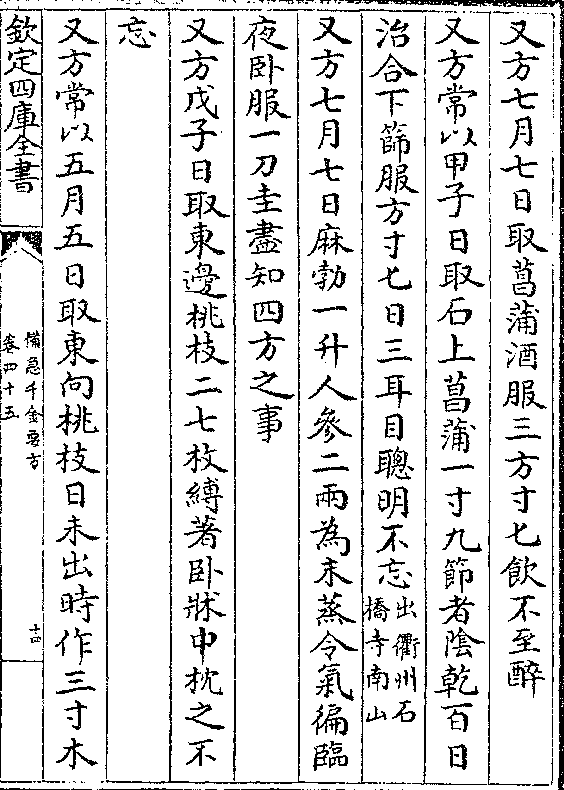 又方七月七日取菖蒲酒服三方寸匕飲不至醉
又方常以甲子日取石上菖蒲一寸九節者陰乾百日
治合下篩服方寸匕日三耳目聰明不忘出衢州石橋寺南山
又方七月七日麻勃一升人參二兩為末蒸令氣徧臨
夜卧服一刀圭盡知四方之事
又方戊子日取東邊桃枝二七枚縛著卧牀中枕之不
忘
又方常以五月五日取東向桃枝日未出時作三寸木
欽定四庫全書
備急千金要方
卷四十五
十四